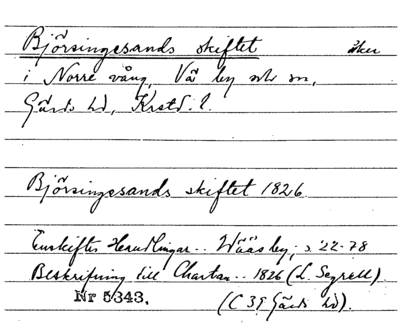 Björsingesands skiftet åker
i Norre vång, Vä by och sn,
Gärds hd, Krstd. l.
Björsingesands skiftet 1826
Enskiftes Handlingar.. Wääs by, s 22-78
Beskrifning till Chartan.. 1826 (L. Segrell).
Nr 5343. (C 35 Gärds hd).